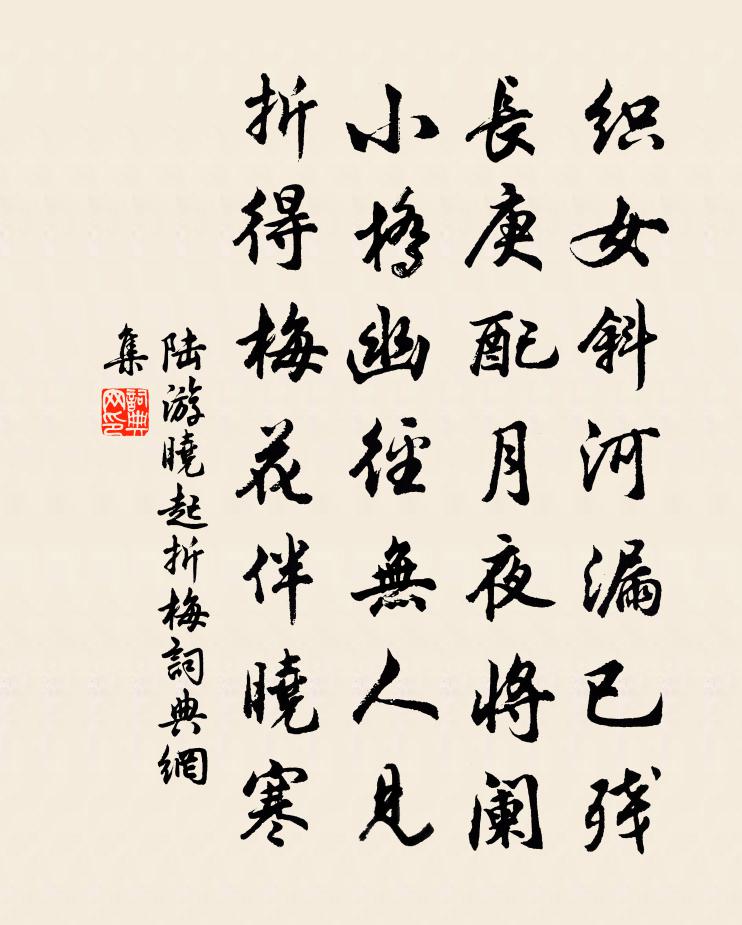 织女斜河漏已残
長庚配月夜将阑
小橋幽径無人見
折得梅花伴曉寒
陆游曉起折梅詞典網
集
詞典
网印